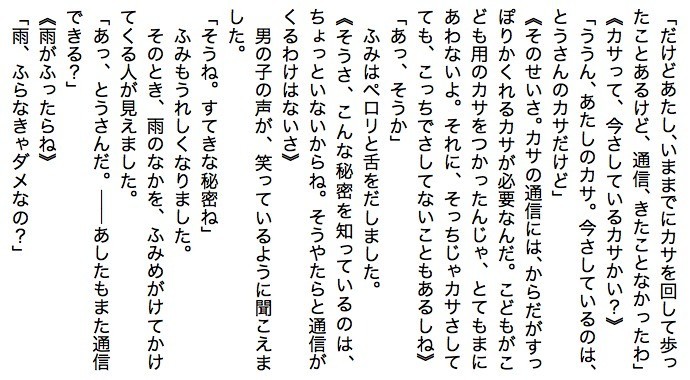 「だけどあたし、いままでにカサを回して歩っ
たことあるけど、通信、きたことなかったわ」
《カサって、今さしているカサかい？》
「ううん、あたしのカサ。今さしているのは、
とうさんのカサだけど」
《そのせいさ。カサの通信には、からだがすっ
ぽりかくれるカサが必要なんだ。こどもがこ
ども用のカサをつかったんじゃ、とてもまに
あわないよ。それに、そっちじゃカサさして
ても、こっちでさしてないこともあるしね》
「あっ、そうか」
ふみはペロリと舌をだしました。
《そうさ、こんな秘密を知っているのは、
ちょっといないからね。そうやたらと通信が
くるわけはないさ》
男の子の声が、笑っているように聞こえま
した。
「そうね。すてきな秘密ね」
ふみもうれしくなりました。
そのとき、雨のなかを、ふみめがけてかけ
てくる人が見えました。
「あっ、とうさんだ。――あしたもまた通信
できる？」
《雨がふったらね》
「雨、ふらなきゃダメなの？」